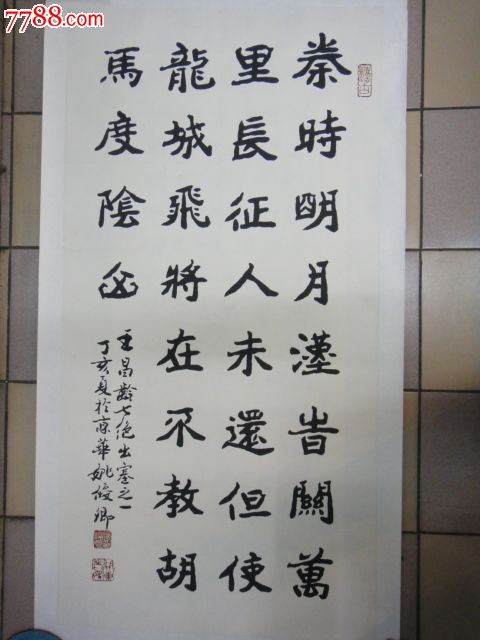 7788.com
秦時明月漢旹關萬
里長征人未還但使
龍城飛將在不教胡
馬度陰山
王昌齡七絕出塞之一
丁亥夏於京華姚俊卿